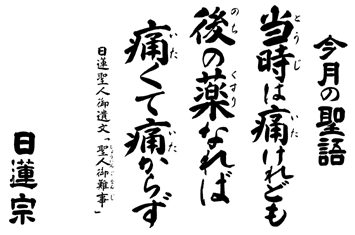 今月の聖語
当時は痛けれども
後の薬なれば
痛くて痛からず
日蓮聖人御遺文「聖人御難事」
日蓮宗